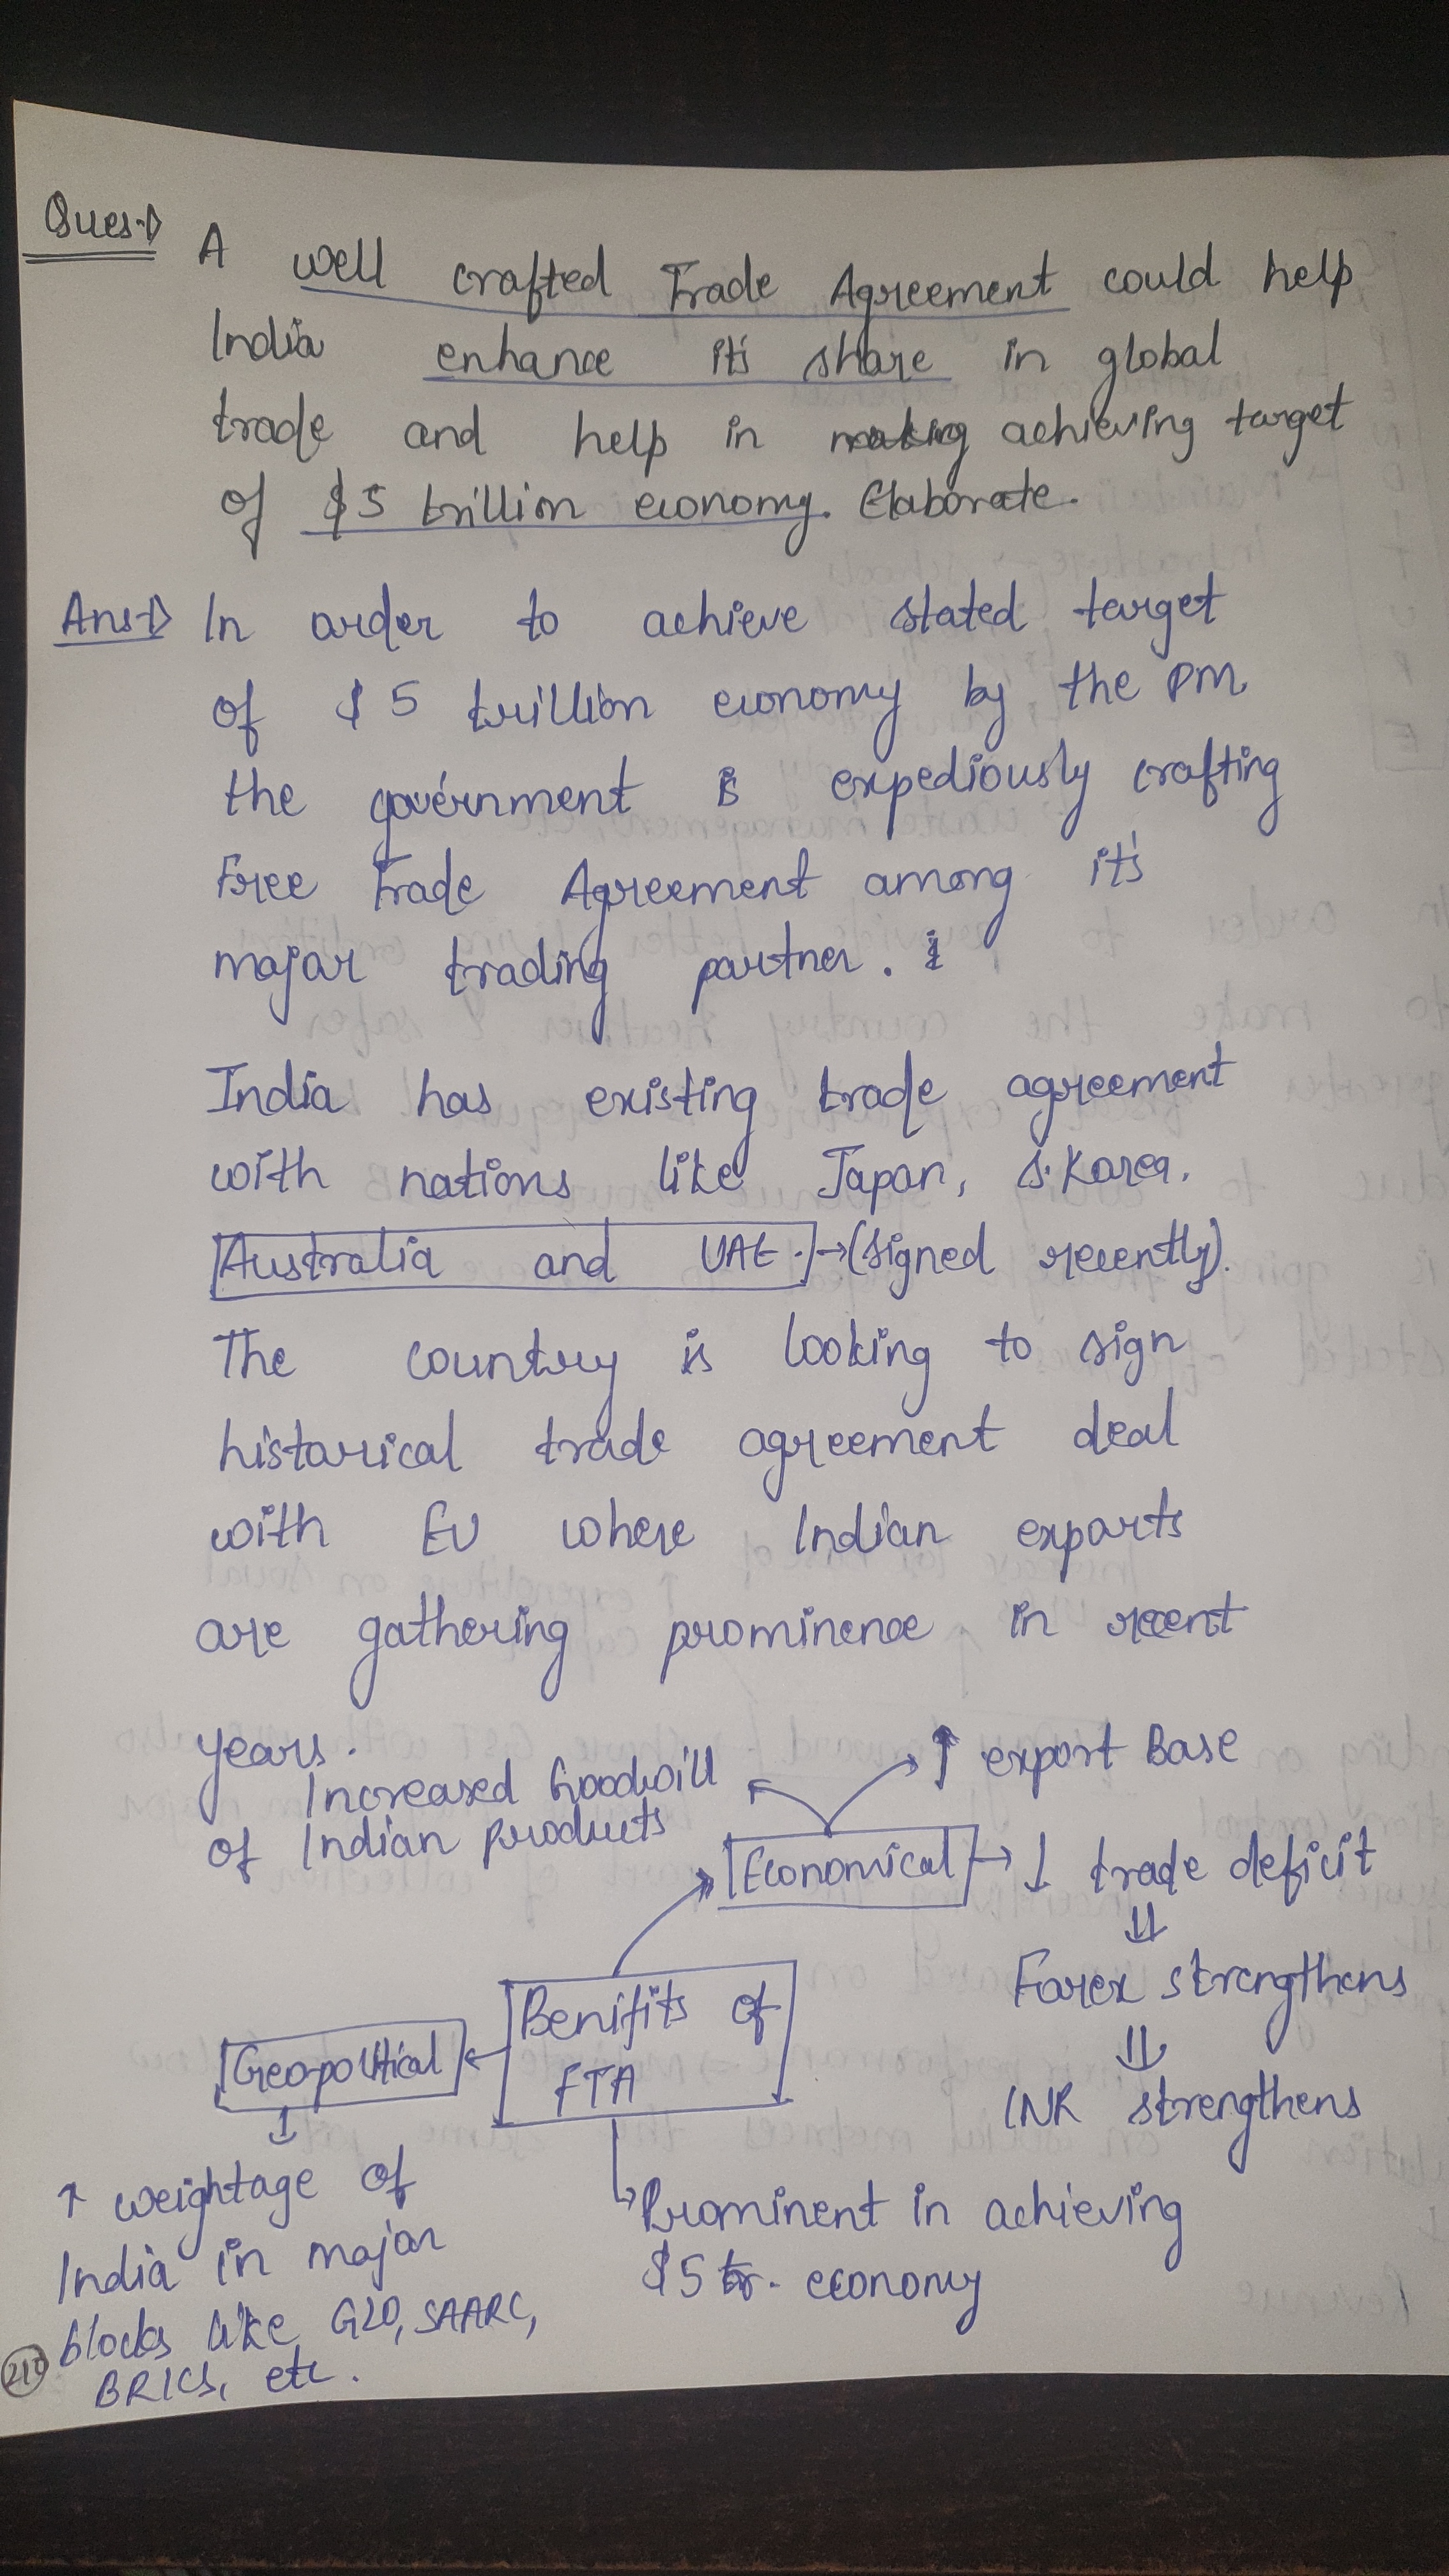 Ques→ A well crafted Trade Agreement could help
India enhance it's share in global
trade and help in making achieving target
of $5 trillion economy. Elaborate.
Ans→ In order to achieve stated target
of $5 trillion economy by the PM,
the government is expediously crafting
Free Trade Agreement among it's
major trading partner.
India has existing trade agreement
with nations like Japan, S.Korea,
Australia and UAE. → (signed recently).
The country is looking to sign
historical trade agreement deal
with EU where Indian exports
are gathering prominence in recent
years.
↑ export Base
Increased Goodwill
of Indian products
Economical → ↓ trade deficit
⇓
Forex strengthens
⇓
INR strengthens
Benifits of
FTA
Geopolitical
↑ weightage of
India in major
blocks like G20, SAARC,
BRICS, etc.
Prominent in achieving
$5 tr. economy